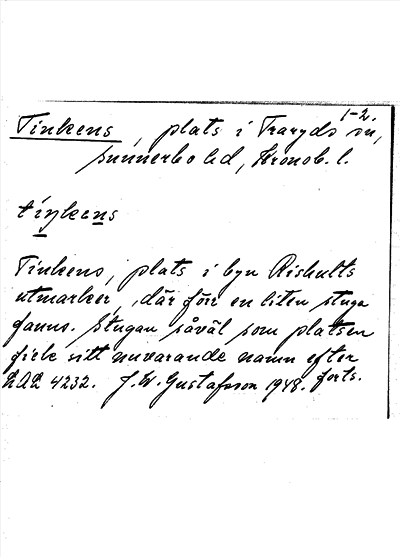 1-2.
Tinkens, plats i Traryds sn,
Sunnerbo hd, Kronob. l.
tiŋkens
Tinkens, plats i byn Rishults
utmarker, där förr en liten stuga
fanns. Stugan såväl som platsen
fick sitt nuvarande namn efter
LAL 4232. J.W. Gustafsson 1948. forts.